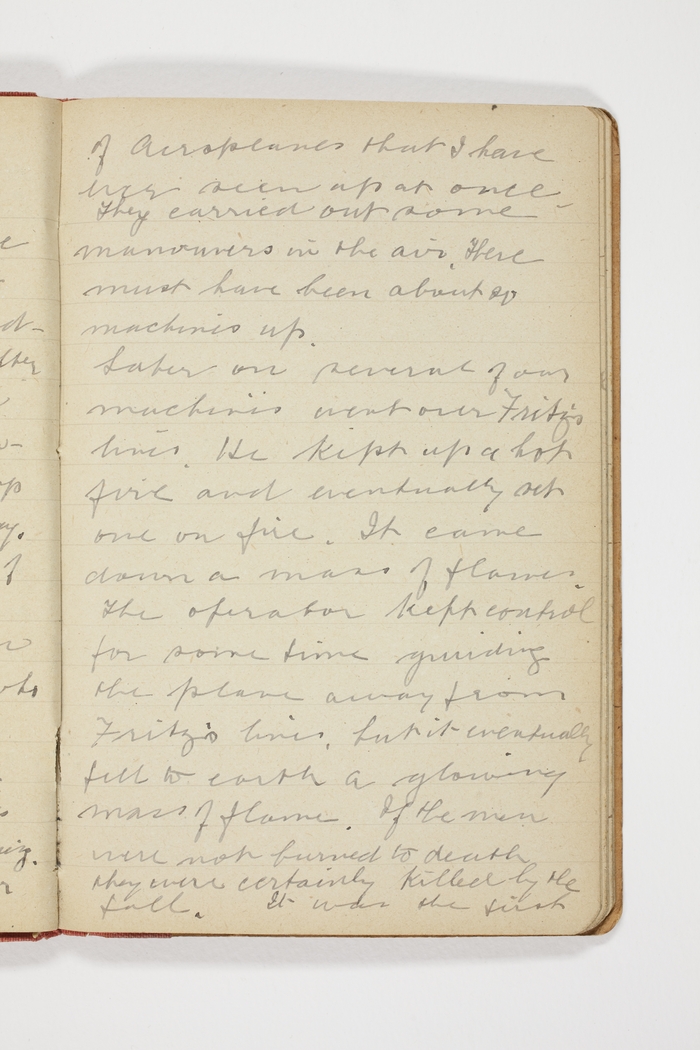 of Aeroplanes that I have
ever seen up at once
They carried out some
manouvers in the air. There
must have been about 20
machines up.
Later on several of our
machines went over Fritz's
lines. He kept up a hot
fire and eventually set
one on fire. It came
down a mass of flames.
The operator kept control
for some time guiding
the plane away from
Fritz's lines, but it eventually
fell to earth a glowing
mass of flame. If the men
were not burned to death
they were certainly killed by the
fall. It was the first